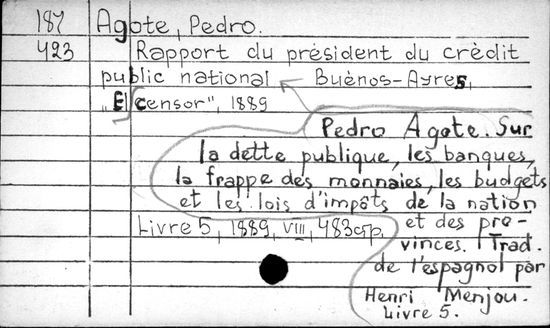 187 Agote, Pedro.
423 Rapport du président du crédit
public national Buénos-Ayres,
„El censor", 1889
Pedro Agote. Sur
la dette publique, les banques,
la frappe des monnaies, les budgets
et les lois d'impâts de la nation
et des pro-
vinces. Trad.
de l'espagnol par
Henri Menjou.
Livre 5.
Livre 5, 1889, VIII, 483 стр.